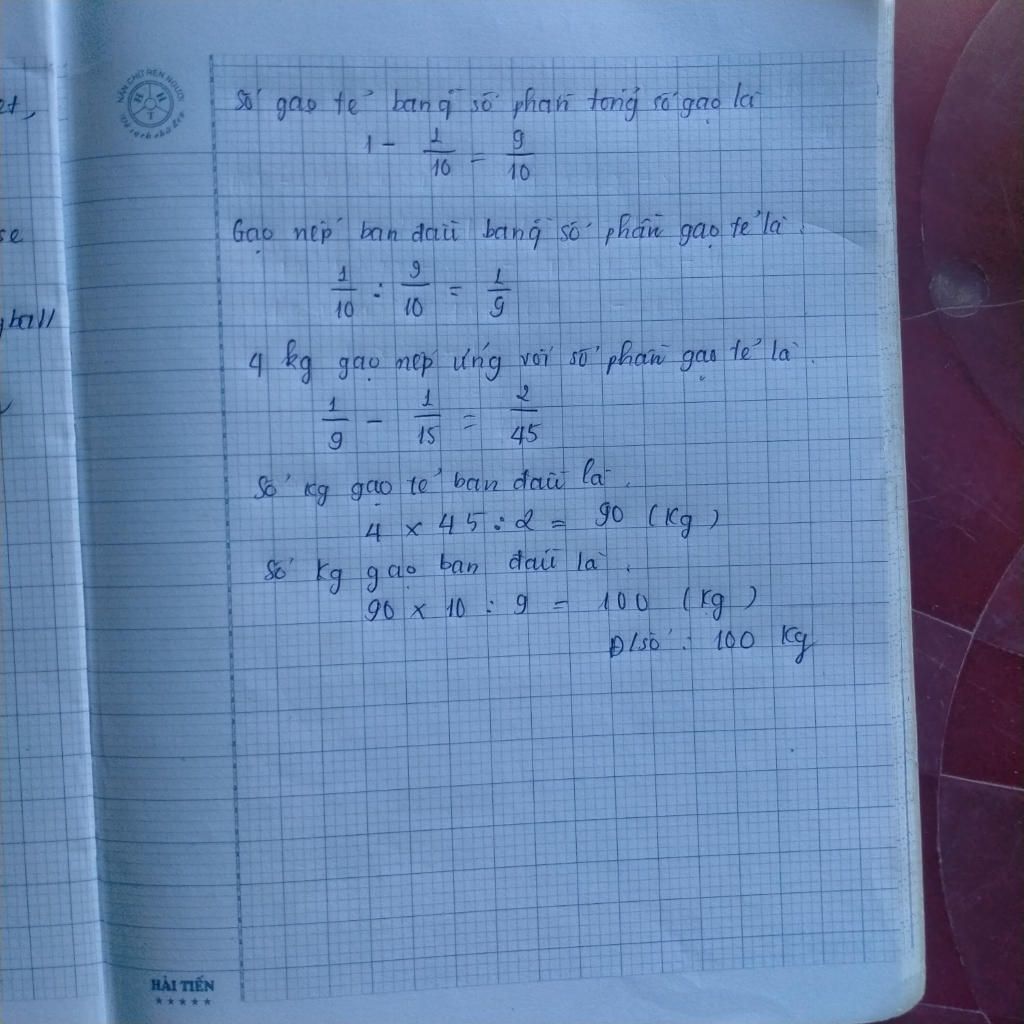 et,
se
ball
NẮN CHỮ RÈN NGƯỜI
H H T
Vở sạch chữ đẹp
Số gạo tẻ bằng số phần tổng số gạo là
1 - 1/10 = 9/10
Gạo nếp ban đầu bằng số phần gạo tẻ là.
1/10 : 9/10 = 1/9
4 kg gạo nếp ứng với số phần gạo tẻ là.
1/9 - 1/15 = 2/45
Số kg gạo tẻ ban đầu là.
4 × 45 : 2 = 90 (kg)
Số kg gạo ban đầu là.
90 × 10 : 9 = 100 (kg)
Đ/số : 100 kg
HẢI TIẾN